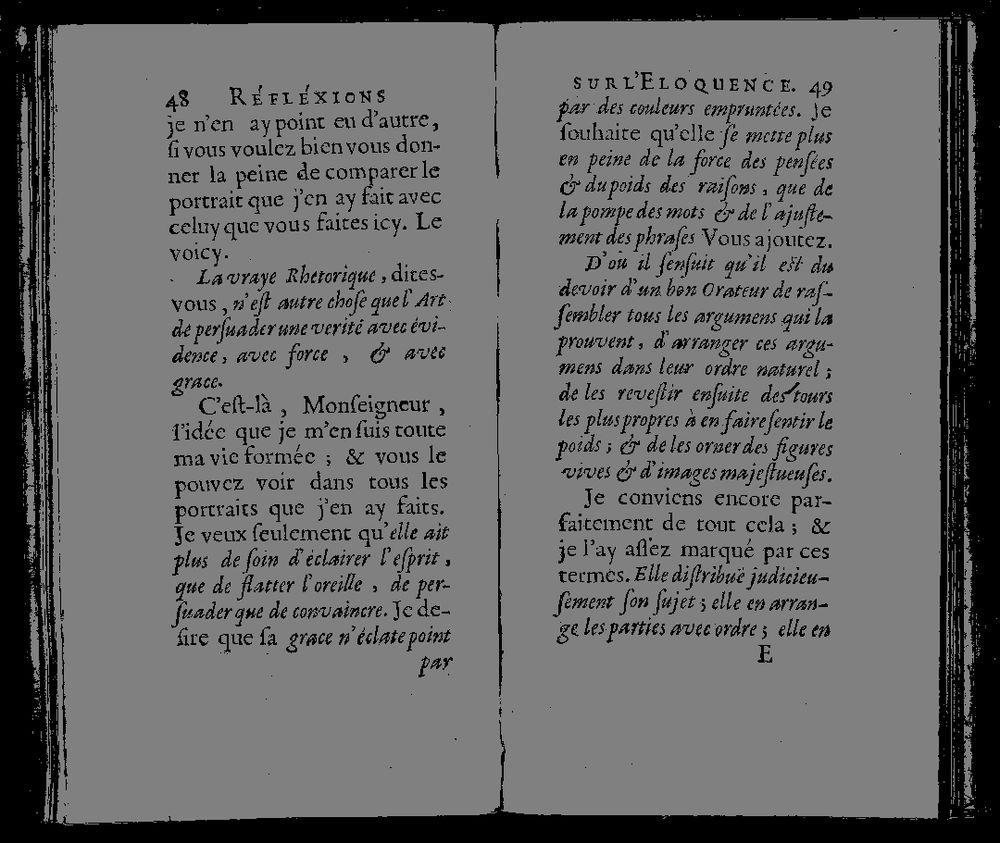 48 RÉFLÉXIONS
je n'en ay point eu d'autre,
ſi vous voulez bien vous don-
ner la peine de comparer le
portrait que j'en ay fait avec
celuy que vous faites icy. Le
voicy.
La vraye Rhetorique, dites-
vous, n'eſt autre choſe que l'Art
de perſuader une verité avec évi-
dence, avec force, & avec
grace.
C'eſt-là, Monſeigneur,
l'idée que je m'en ſuis toute
ma vie formée ; & vous le
pouvez voir dans tous les
portraits que j'en ay faits.
Je veux ſeulement qu'elle ait
plus de ſoin d'éclairer l'eſprit,
que de flatter l'oreille, de per-
ſuader que de convaincre. Je de-
ſire que ſa grace n'éclate point
par
SUR L'ELOQUENCE. 49
par des couleurs empruntées. Je
ſouhaite qu'elle ſe mette plus
en peine de la force des penſées
& du poids des raiſons, que de
la pompe des mots & de l'ajuſte-
ment des phraſes Vous ajoutez.
D'où il ſenſuit qu'il eſt du
devoir d'un bon Orateur de raſ-
ſembler tous les argumens qui la
prouvent, d'arranger ces argu-
mens dans leur ordre naturel ;
de les reveſtir enſuite des tours
les plus propres à en faire ſentir le
poids ; & de les orner des figures
vives & d'images majeſtueuſes.
Je conviens encore par-
faitement de tout cela ; &
je l'ay aſſez marqué par ces
termes. Elle diſtribuë judicieu-
ſement ſon ſujet ; elle en arran-
ge les parties avec ordre ; elle en
E